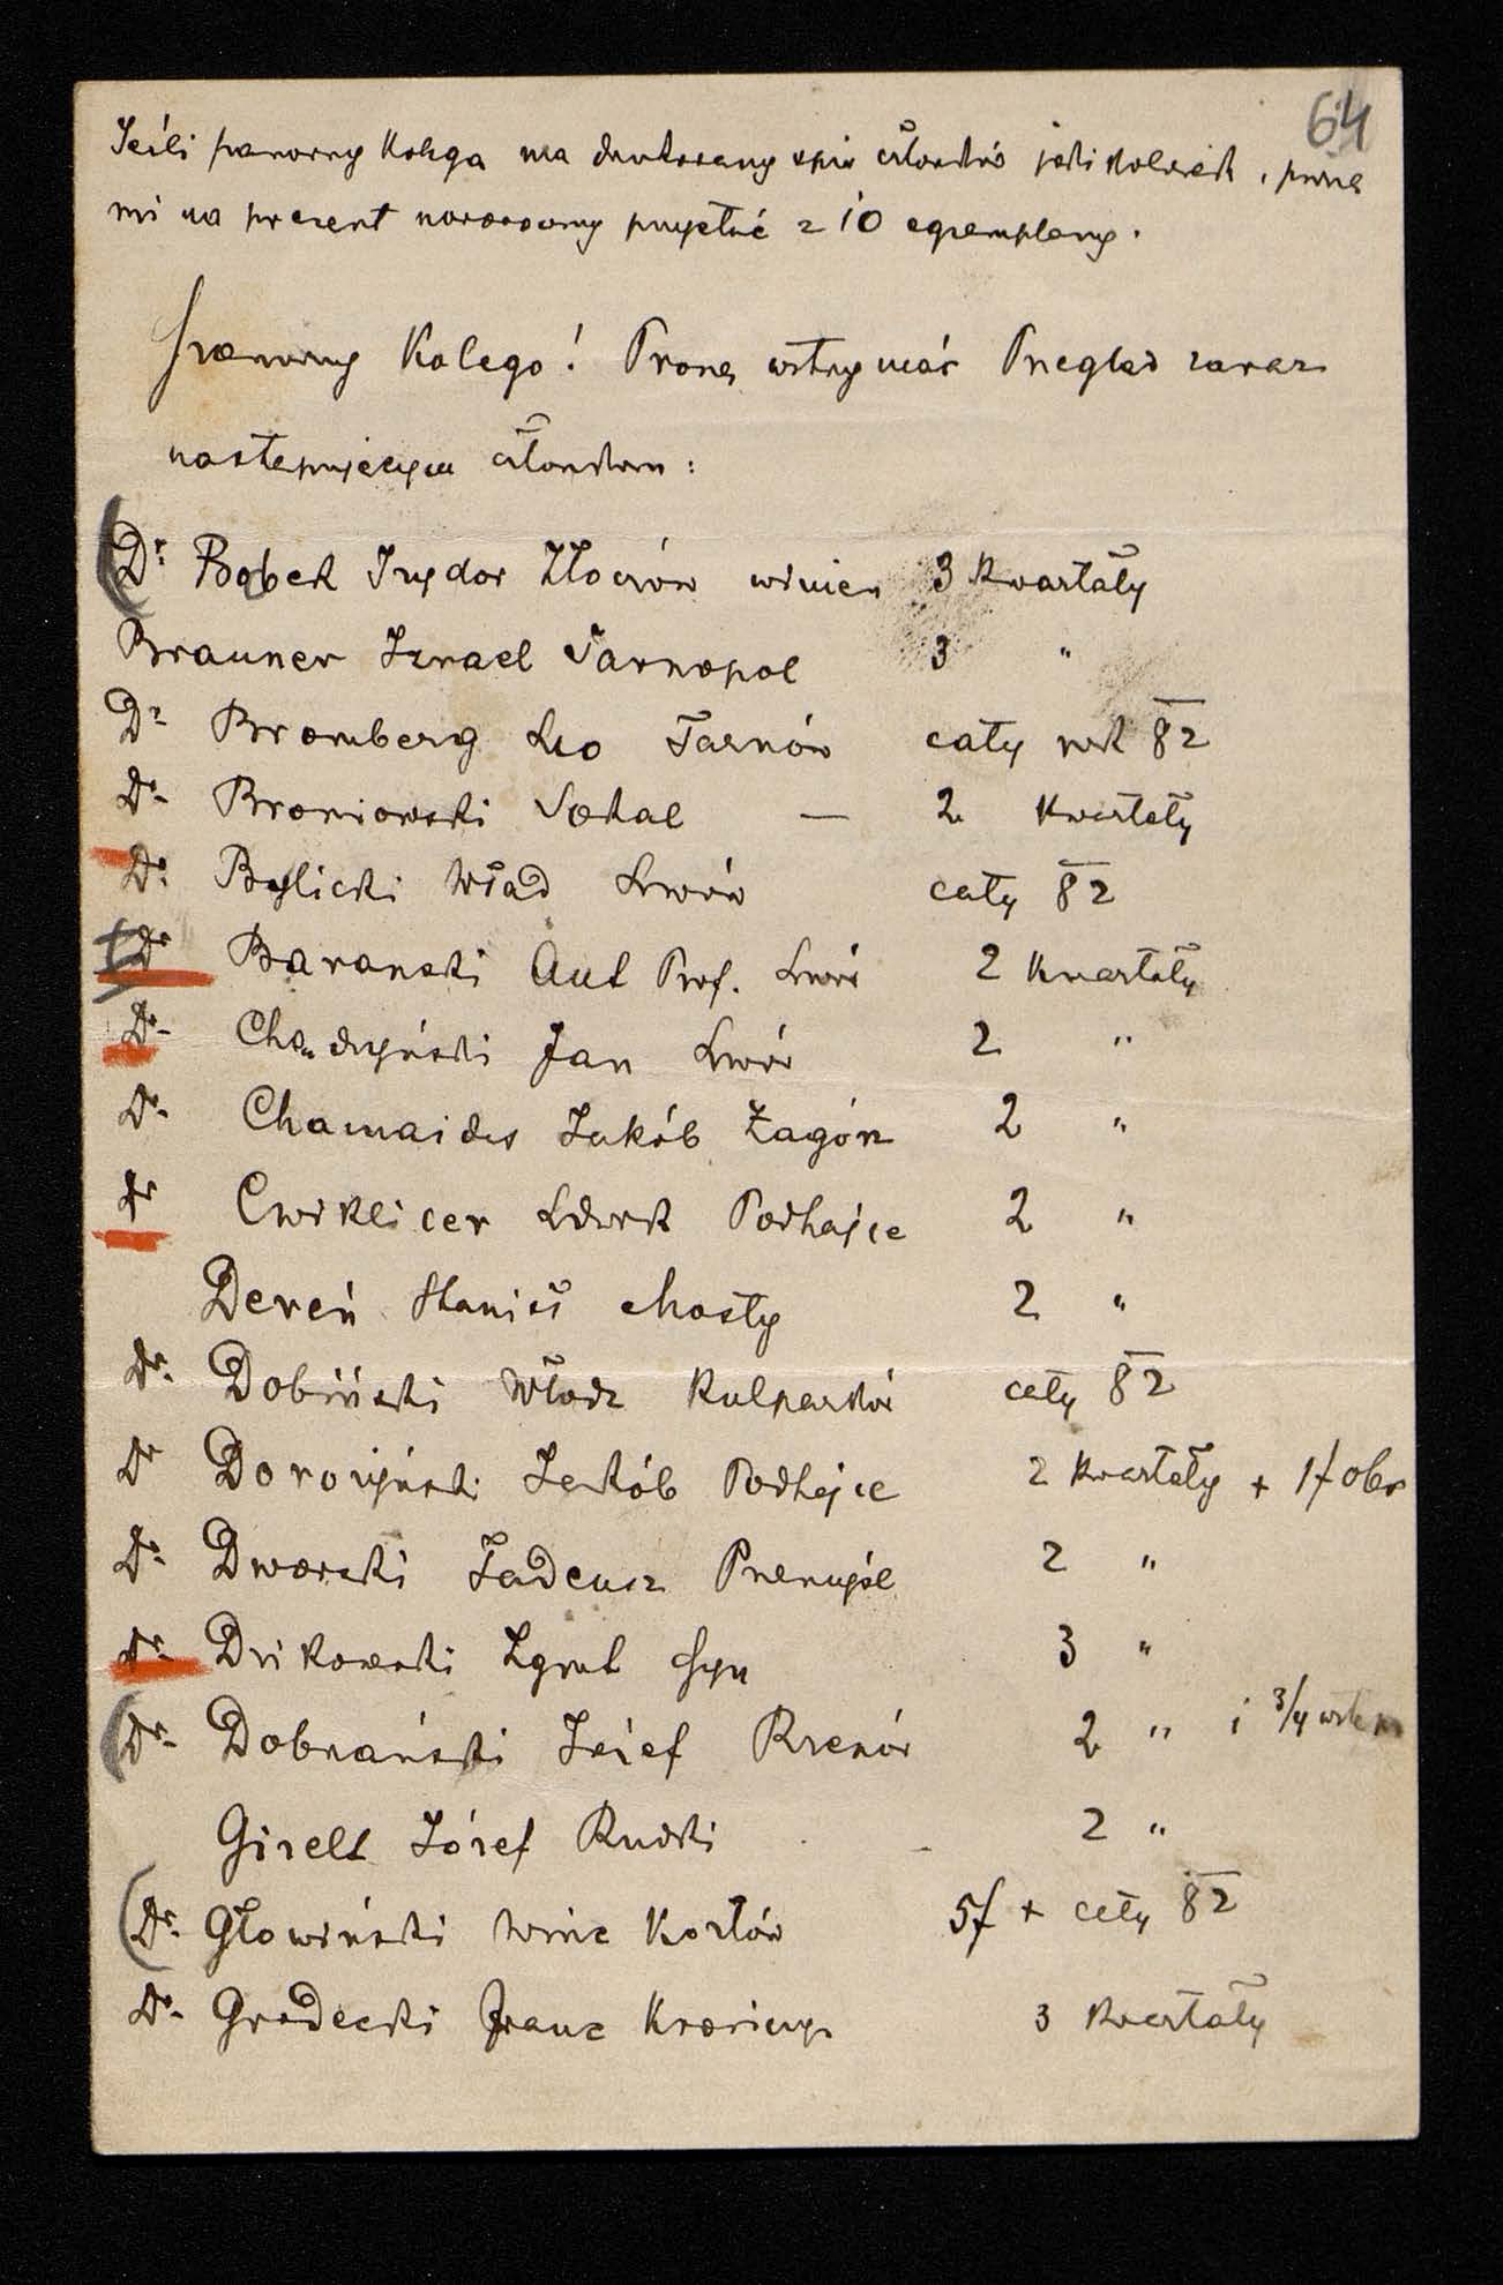 64
Jeśli szanowny Kolega ma drukowany spis członków jaki kolwiek, proszę
mi na prezent przysłać z 10 egzemplarzy.
Szanowny Kolego! Proszę wstrzymać Przegląd zaraz
następującym członkom:
Dr Bobek Izydor Złoczów winien 3 kwartały
Brauner Izrael Tarnopol 3 "
Dr Bromberg Leo Tarnów cały rok 82
Dr Broniowski Sokal — 2 kwartały
Dr Bylicki Wład Lwów cały 82
Dr Baranski Ant Prof. Lwów 2 kwartały
Dr Chądzyński Jan Lwów 2 "
Dr Chamaides Jakób Zagórz 2 "
Dr Cwiklicer Ludwik Podhajce 2 "
Dereń Stanisł Mosty 2 "
Dr Dobiński Włodz Kulparków cały 82
Dr Dorożyński Jakób Podhajce 2 kwartały + 1f
Dr Dworski Tadeusz Przemyśl 2 "
Dr Drikowski Zgmt syn 3 "
Dr Dobrzański Józef Rzeszów 2 " i 3/4
Girelt Józef Rudki 2 "
Dr Głowiński Winc Kozłów 5f + cały 82
Dr Grodecki Franc 3 kwartały